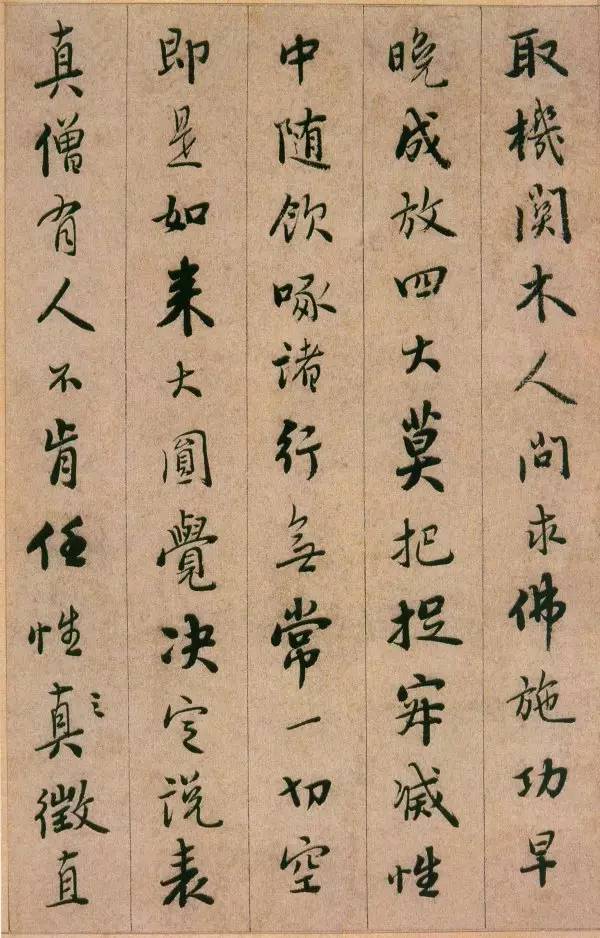 取機関木人問求佛施功早
晚成放四大莫把捉寂滅性
中随飲啄諸行無常一切空
即是如来大圓覺决定説表
真僧有人不肯任性真徵直